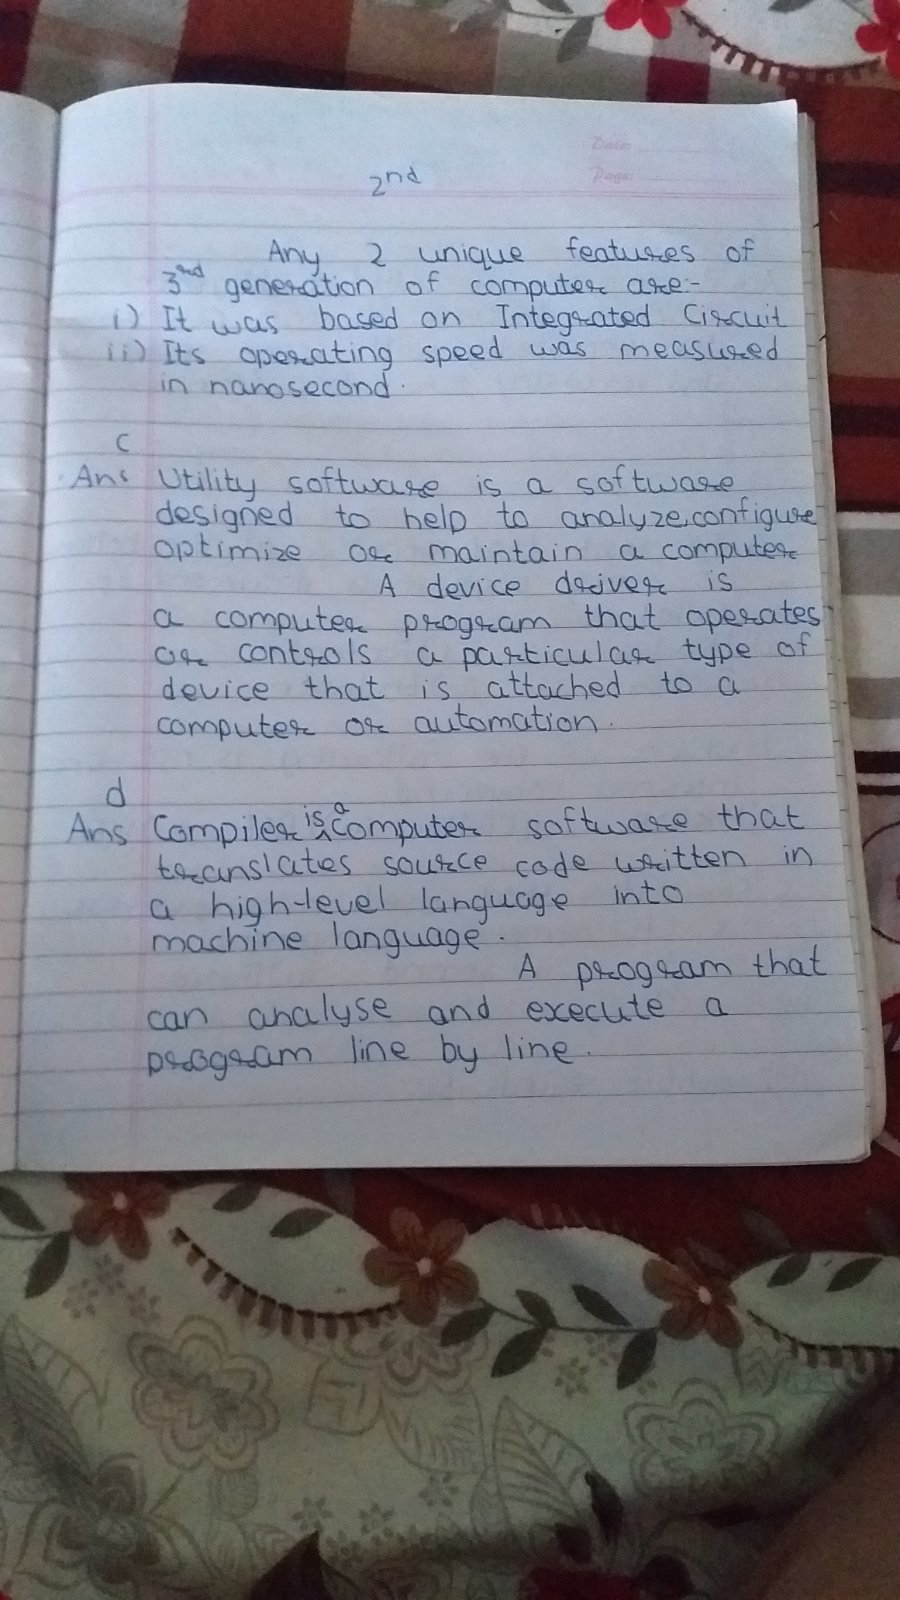 Date:
Page:
2nd
Any 2 unique features of
3rd generation of computer are:-
i) It was based on Integrated Circuit
ii) Its operating speed was measured
in nanosecond.
c
Ans Utility software is a software
designed to help to analyze, configure
optimize or maintain a computer
A device driver is
a computer program that operates
or controls a particular type of
device that is attached to a
computer or automation.
d
Ans Compiler is a computer software that
translates source code written in
a high-level language into
machine language.
A program that
can analyse and execute a
program line by line.